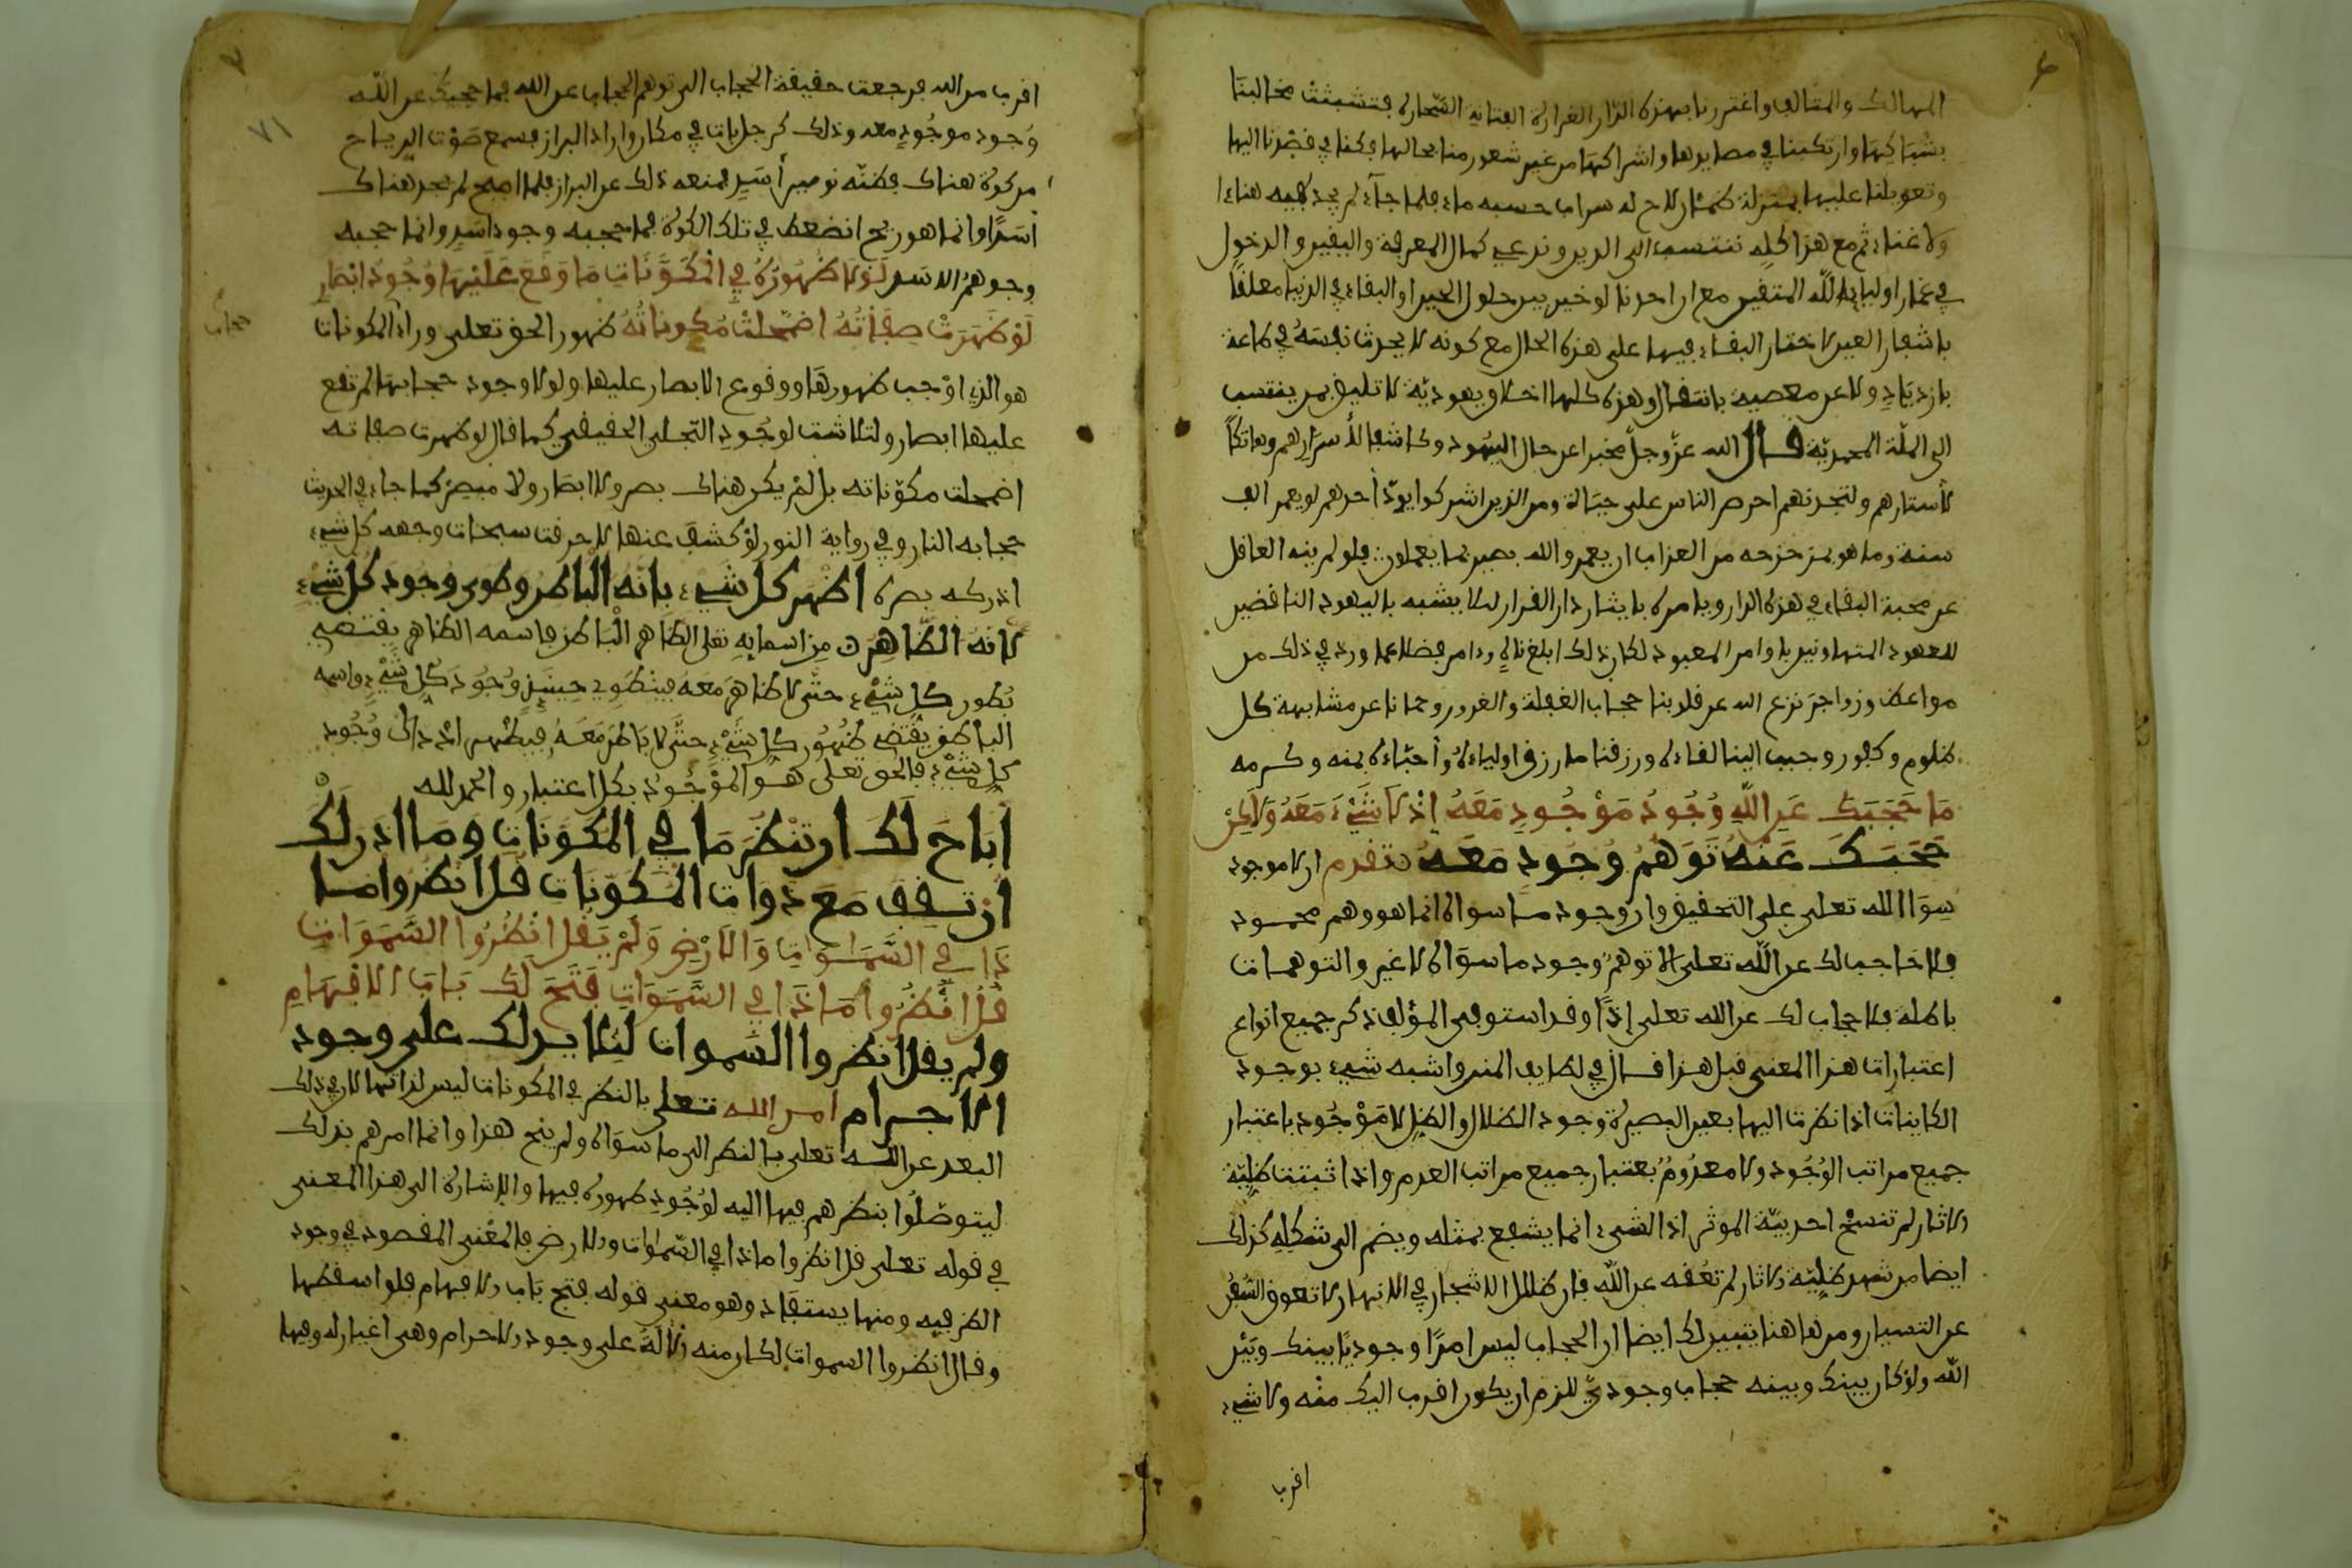 المهالك والمتالف واغتررنا بهذه الدار الغرارة الفتانة السحارة فتشبثت مخالبنا
بشباكها وارتكبنا في مصايدها واشراكها من غير شعور منا بحالها فكنا في قصدنا اليها
وتعويلنا عليها بمنزلة ظمئان لاح له سراب حسبه ماء فلما جآء لم يجد فيه هناءا
ولا غناء ثم مع هذا كله ننتسب الى الدين وندعي كمال المعرفة واليقين والدخول
في غمار اولياء الله المتقين مع ان احدنا لو خير بين حلول الحين او البقاء في الدنيا معلقا
باشفار العين لاختار البقاء فيها على هذه الحال مع كونه لا يحدث نفسه في طاعة
بازدياد ولا عن معصية بانتقال وهذه كلها اخلاق يهودية لا تليق بمن ينتسب
الى الملة المحمدية قال الله عز وجل مخبرا عن حال اليهود وكاشفا لأسرارهم وهاتكا
لأستارهم ولتجدنهم احرص الناس على حياة ومن الذين اشركوا يود أحدهم لو يعمر الف
سنة وما هو بمزحزحه من العذاب ان يعمر والله بصير بما يعملون فلو لم ينه العاقل
عن محبة البقاء في هذه الدار ويامره بايثار دار القرار لئلا يشبه باليهود الناقضين
للعهود المتهاونين باوامر المعبود لكان ذلك ابلغ ناه وءامر فضلا عما ورد في ذلك من
مواعظ وزواجر نزع الله عن قلوبنا حجاب الغفلة والغرور وحمانا عن مشابهة كل
ظلوم وكفور وحبب الينا لقاءه ورزقنا ما رزق اولياءه وأحبّاءه بمنه وكرمه
مَا حَجَبَكَ عَنِ اللَّهِ وُجُودُ مَوْجُودٍ مَعَهُ إِذْ لَا شَيْءَ مَعَهُ وَلَكِنْ
حَجَبَكَ عَنْهُ تَوَهُّمُ وُجُودٍ مَعَهُ تقدم ان لا موجود
سِوَا الله تعلى على التحقيق وان وجود ما سواه انما هو وهم محمود
فلا حاجب لك عن الله تعلى الا توهم وجود ما سواه لا غير والتوهمات
باطلة فلا حجاب لك عن الله تعلى إذًا وقد استوفى المؤلف ذكر جميع انواع
اعتبارات هذا المعنى قبل هذا قال في لطايف المنن واشبه شيء بوجود
الكاينات اذا نظرت اليها بعين البصيرة وجود الظلال والظل لا مَوْجُود باعتبار
جميع مراتب الوُجُود ولا معدُومٌ بعتبار جميع مراتب العدم واذا ثبتت ظلية
الاثار لم تنسخ احدية الموثر اذا الشيء انما يشفع بمثله ويضم الى شكله كذلك
ايضا من شهد ظلية الاثار لم تعُقه عن الله فان ظلال الاشجار في الانهار لا تعوق السُّفُن
عن التسيار ومن هاهنا يتبين لك ايضا ان الحجاب ليس امرًا وجوديًا بينك وبَيْن
الله ولو كان بينك وبينه حجاب وجودي للزم ان يكون اقرب اليك منه ولا شيء
اقرب
٧
٧١
اقرب من الله فرجعت حقيقة الحجاب الى توهم الحجاب عن الله فما حجبك عن الله
وُجود موجُودٍ معه وذلك كرجل بات في مكان واراد البراز فسمع صَوْت الرياح
من كوة هناك فظنّه زئير أسَدٍ فمنعه ذلك عن البراز فلما اصبح لم يجد هناك
أسَدًا وانما هو ريح انضغط في تلك الكوة فما حجبه وجود اسَدٍ وانما حجبه
وجوهمُ الاسد لَوْلَا ظُهُورُهُ فِي الْمُكَوَّنَاتِ مَا وَقَعَ عَلَيْهَا وُجُودُ ابْصَارٍ
لَوْ ظَهَرَتْ صِفَاتُهُ اضمَحَلَّتْ مُكَوناتُهُ ظهور الحق تعلى وراء المكونات
حجاب
هو الذي اوْجب ظهورهَا ووقوع الابصار عليها ولولا وجود حجابها لم تقع
عليها ابصار ولتلاشت لوجُودِ التّجلى الحقيقي كما قال لو ظهرت صفاته
اضمحلت مكوّناته بل لمْ يكن هناك بصر ولا ابصَار ولا مبصِرٌ كما جاء في الحديث
حجابه النار وفي رواية النور لوْ كشفَ عنها لاحرقت سبحات وجهه كل شيء
ادركه بصره اظهر كل شيء بانه الباطن وطوى وجود كل شيء
لأنهُ الظَّاهِرُ مِن اسمايه تعلى الظاهر الْبَاطن فاسمه الظاهر يقتضي
بُطون كل شيْء حتَّى لا ظاهِرَ معَهُ فينطَوِي حِينَئِذٍ وُجُودَ كُلِّ شَيْءٍ واسمه
الباطن يَقْتَضِي ظُهُور كل شَيْءٍ حتَّى لا بَاطِنَ مَعَهُ فيظْهر وُجُود
كل شَيْء فالحق تعلى هُوَ المَوْجُودُ بكل اعتبار والحمد لله
أَبَاحَ لَكَ ان تَنْظُرَ مَا فِي المُكَوَّنَاتِ وَمَا اذن لَكَ
ان تَقِف مَعَ ذَوات المُكَوَّنَات قُل انظُرُوا مَا
ذَا فِي السَّمَاوَاتِ وَالأَرْضِ وَلَمْ يَقُل انْظُرُوا السَّمَوَاتِ
قُلْ انْظُرُوا مَاذَا فِي السَّمَوَاتِ فَتَحَ لَكَ بَابَ الافْهَامِ
ولم يقل انظروا السموات لئلا يدلك على وجود
الاجرام امر الله تعلى بالنظر في المكونات ليس لذاتها لان في ذلك
البعد عن الله تعلى بالنظر الى ما سوَاه ولم ينح هذا وانما امرهم بذلك
ليتوصّلُوا بنظرهم فيها اليه لوُجُودِ ظهوره فيها والاشارة الى هذا المعنى
في قوله تعلى قل انظروا ماذا في السّموات والارض فالمعْنى المقصود في وجود
الظرفيه ومنها يستفاد وهو معنى قوله فتح بَاب الافهام فلو اسقطها
وقال انظروا السموات لكان منه دلالَةً على وجود الاجرام وهى اغيار له وفيها